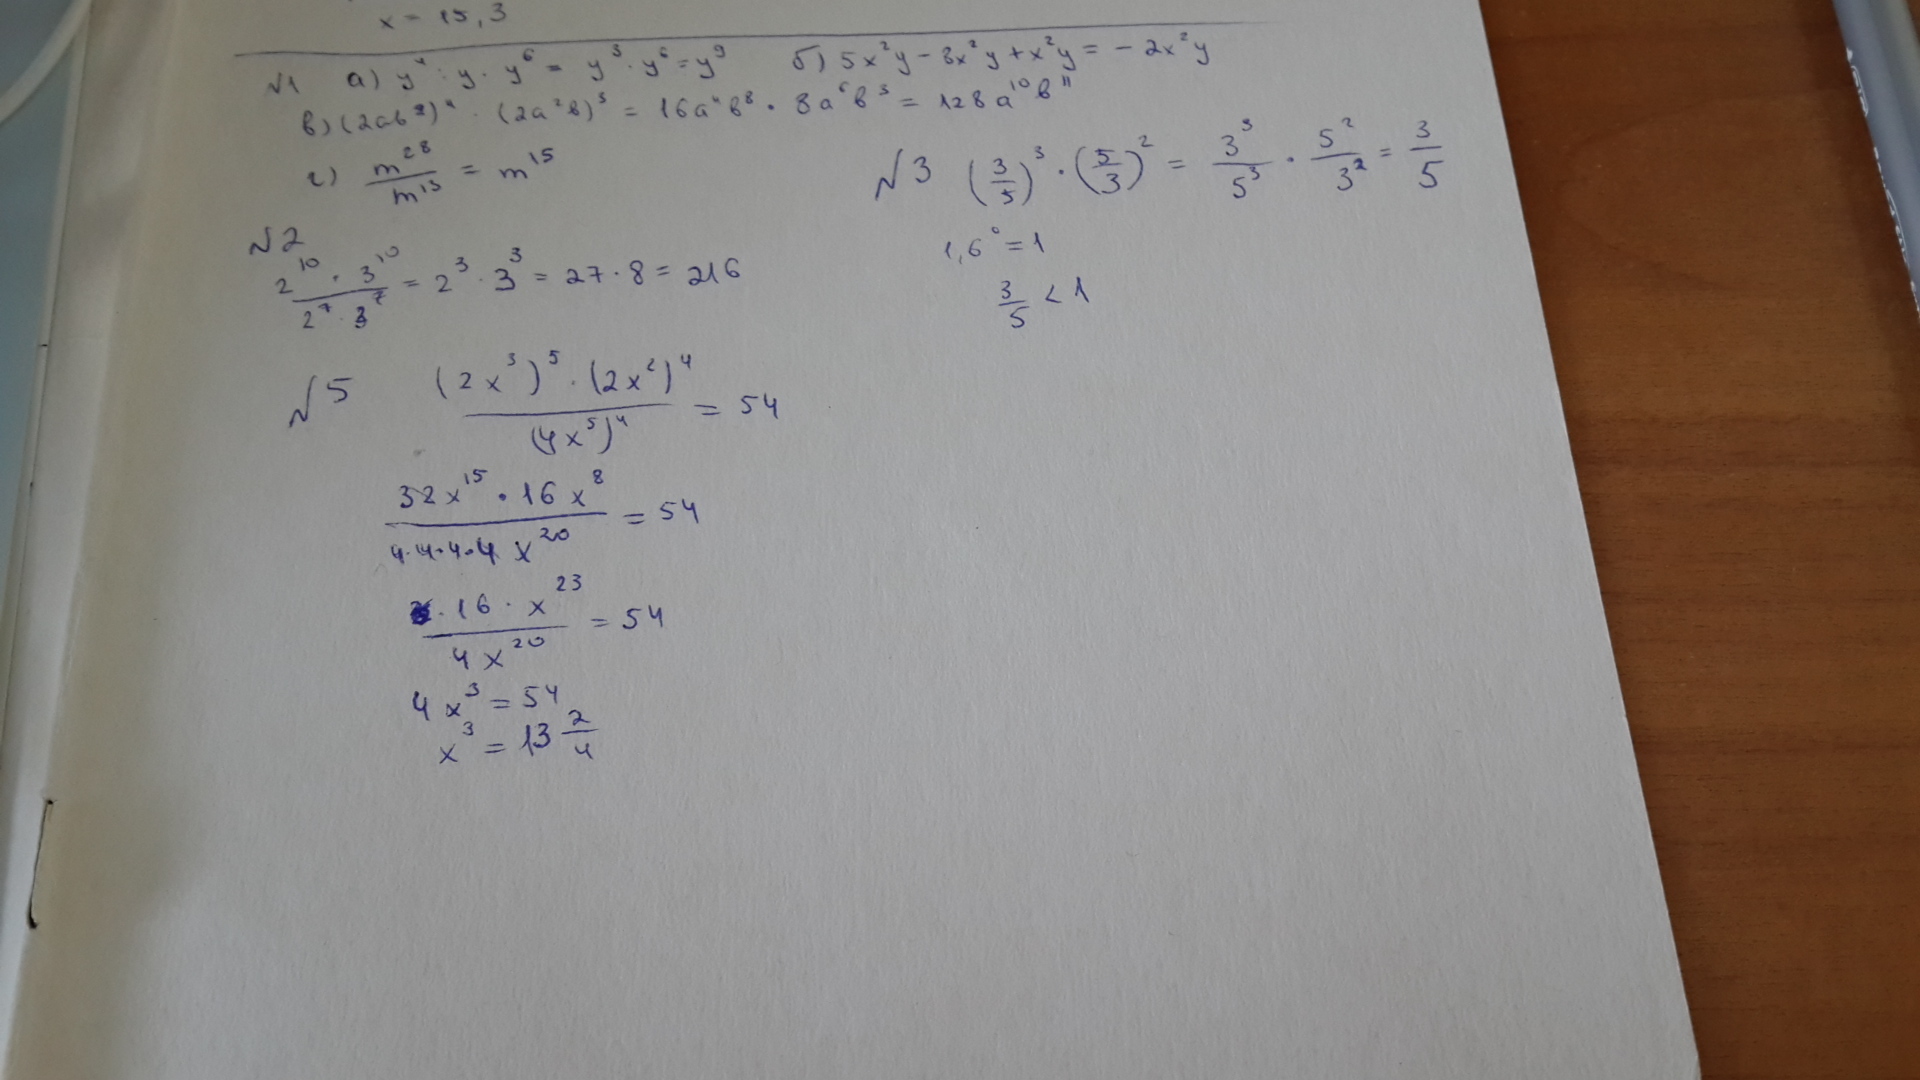 x = 15,3
№1 а) y⁴ : y · y⁶ = y³ · y⁶ = y⁹ б) 5x²y - 8x²y + x²y = - 2x²y
в) (2ab²)⁴ · (2a²b)³ = 16a⁴b⁸ · 8a⁶b³ = 128a¹⁰b¹¹
г) m²⁸/m¹³ = m¹⁵
№2
2¹⁰ · 3¹⁰ / 2⁷ · 3⁷ = 2³ · 3³ = 27 · 8 = 216
№3 (3/5)³ · (5/3)² = 3³/5³ · 5²/3² = 3/5
1,6⁰ = 1
3/5 < 1
№5 (2x³)⁵ · (2x²)⁴ / (4x⁵)⁴ = 54
32x¹⁵ · 16x⁸ / 4·4·4·4 x²⁰ = 54
· 16 · x²³ / 4x²⁰ = 54
4x³ = 54
x³ = 13 2/4